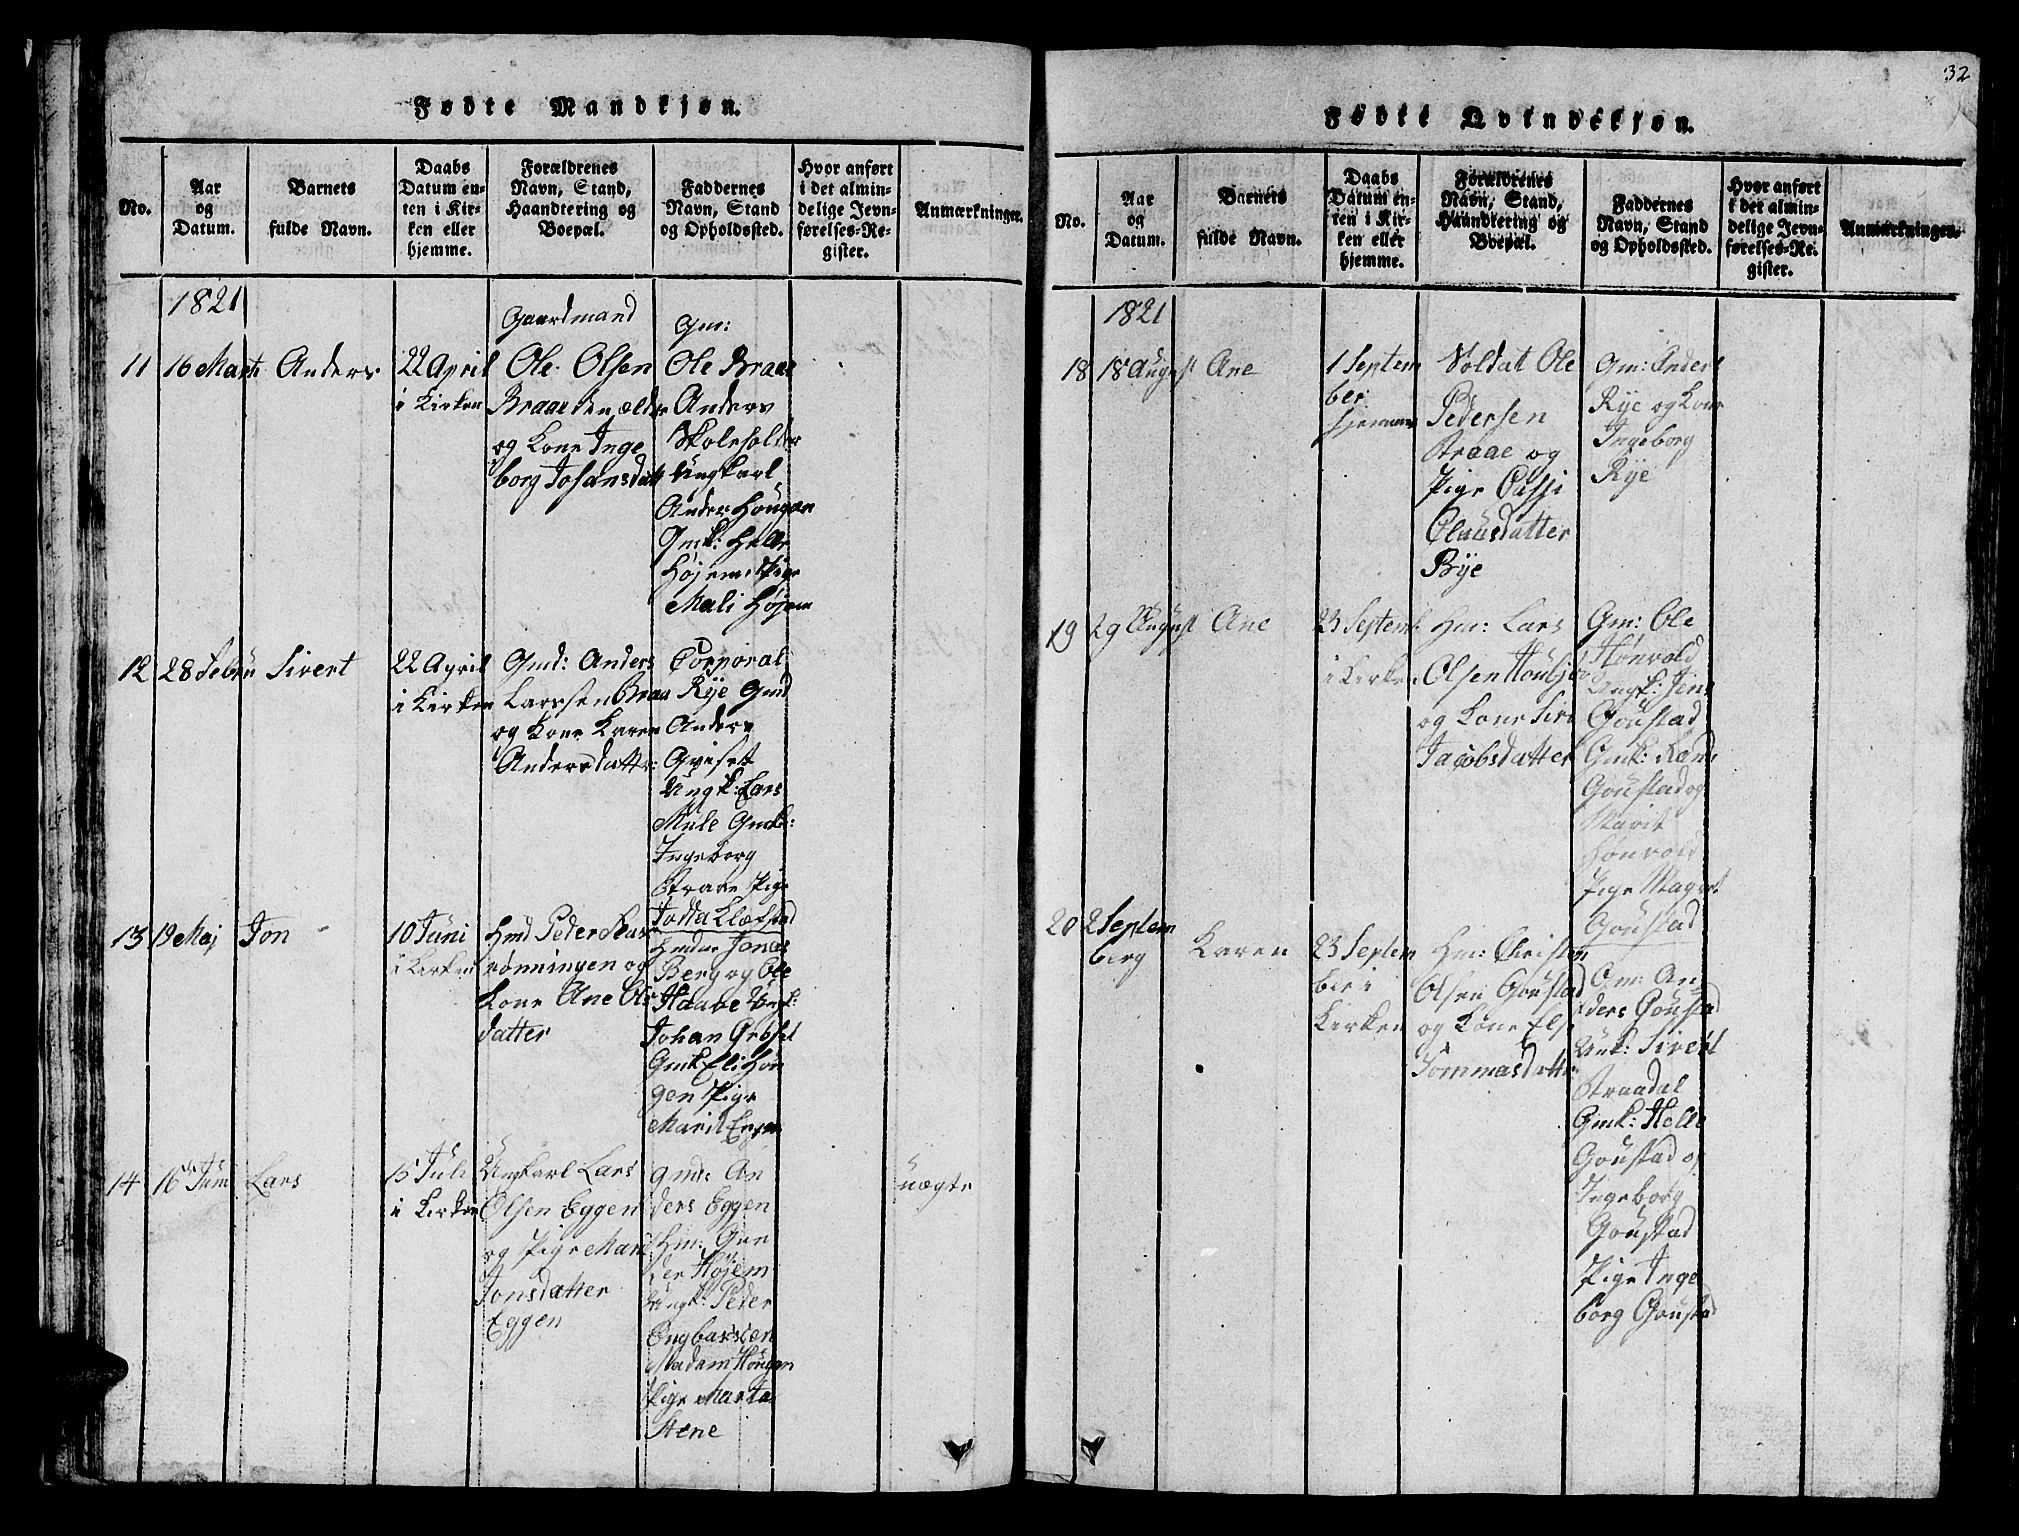 32
Fødte Mandkjøn.
No.
Aar
og
Datum.
Barnets
fulde Navn.
Daabs
Datum en-
ten i Kir-
ken eller
hjemme.
Forældrenes
Navn, Stand,
Haandtering og
Boepæl.
Faddernes
Navn, Stand
og Opholdssted.
Hvor anført
i det almin-
delige Jevn-
førelses-Re-
gister.
Anmærkninger.
1821
11
16 Marts
Anders
22 April
i Kirken
Gaardmand
Ole Olsen
Braae den ældre
og Kone Inge
borg Johansdatt
Gm:
Ole Braae
Anders
Skoleholder
Ungkarl
Anders Hougan
Gmk: Helle
Højem Pige
Mali Højem
12
28 Febru
Sivert
22 April
i Kirken
Gmd: Anders
Larssen Braa
og Kone Karen
Andersdatter:
Corporal
Rÿe Gmd
Anders
Qviset
Ungk: Lars
Mule Gmk:
Ingeborg
Braae Pige
Jotta Klæfstad
13
19 Maj
Jon
10 Juni
i Kirken
Hmd Peder
rönningen og
Kone Ane Ols
datter
Hmdne Jonas
Berg og Ole
Haave Ungk:
Johan Gröset
Gmk Eli Hön
gen Pige
Marit
14
16 Juni
Lars
15 Juli
i Kirken
Ungkarl Lars
Olsen Eggen
og Pige Marit
Jonsdatter
Eggen
gmd: An
ders Eggen
Hm: Gun
der Höjem
Ungk: Peder
Engbarssen
Madam Hougen
Pige Marta
Stene
uægte
Fødte Qvindekjøn.
No.
Aar
og
Datum.
Barnets
fulde Navn.
Daabs
Datum en-
ten i Kir-
ken eller
hjemme.
Forældrenes
Navn, Stand,
Haandtering og
Boepæl.
Faddernes
Navn, Stand
og Opholdssted.
Hvor anført
i det almin-
delige Jevn-
førelses-Re-
gister.
Anmærkninger.
1821
18
18 August
Ane
1 Septem
ber
hjemme
Soldat Ole
Pedersen
Braae og
Pige
Olausdatter
Rÿe
Gm: Anders
Rÿe og Kone
Ingeborg
Rÿe
19
29 August
Ane
23 Septemb
i Kirken
Hm: Lars
Olsen
og Kone Siri
Jacobsdatter
Gm: Ole
Hönvold
Ungk: Jens
Goustad
Gmk: Rand
Goustad og
Marit
Hönvold
Pige Magret
Goustad
20
2 Septem
berg
Karen
23 Septem
ber i
Kirken
Hm: Christen
Olsen Goustad
og Kone Els
Tommasdatter
Gm: An
ders Goustad
Unk: Sivert
Straadal
Gmk: Helle
Goustad og
Ingeborg
Goustad
Pige Inge
borg Goustad